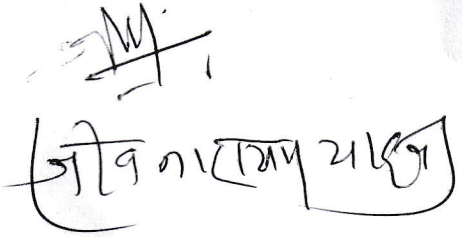 जीव नारायण यादव